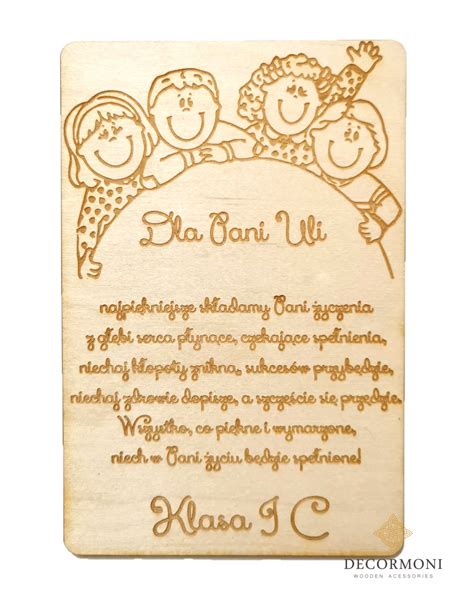 Dla Pani Uli
najpiękniejsze składamy Pani życzenia
z głębi serca płynące, czekające spełnienia,
niechaj kłopoty znikną, sukcesów przybędzie,
niechaj zdrowie dopisze, a szczęście się przędzie.
Wszystko, co piękne i wymarzone,
niech w Pani życiu będzie spełnione!
Klasa I C
DECORMONI
WOODEN ACESSORIES